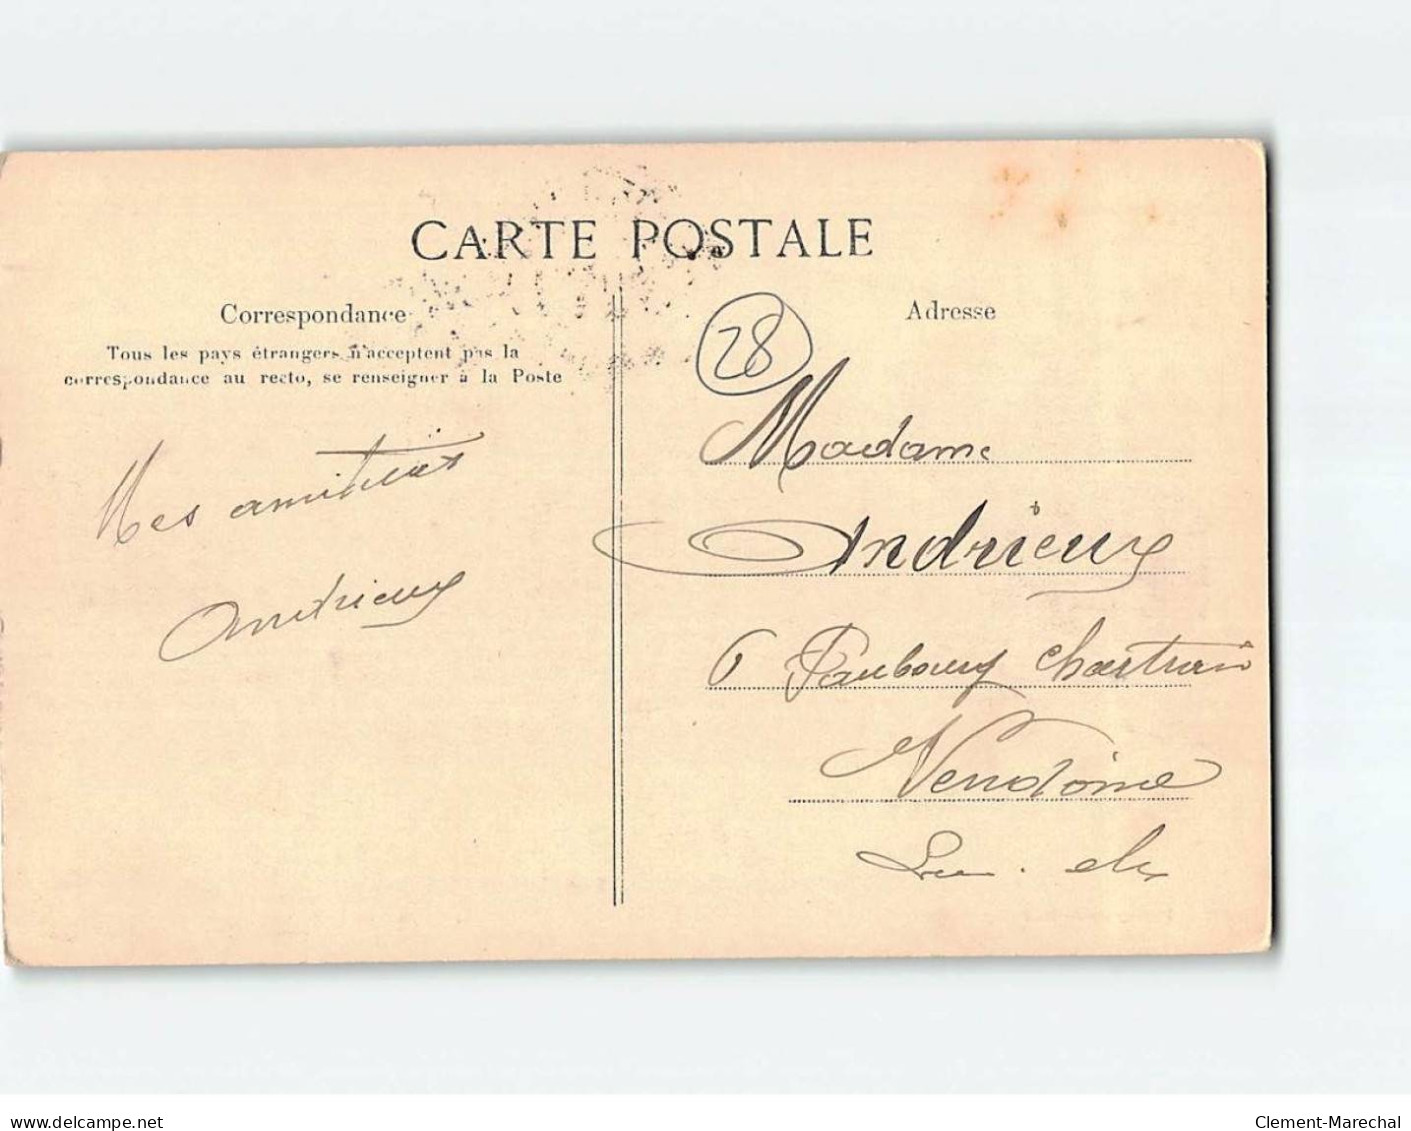 CARTE POSTALE
Correspondance
Tous les pays étrangers n'acceptent pas la
correspondance au recto, se renseigner à la Poste
Adresse
28
Mes amitiés
Andrieux
Madame
Andrieux
6 Faubourg Chartrain
Vendôme
www.delcampe.net
Clement-Marechal